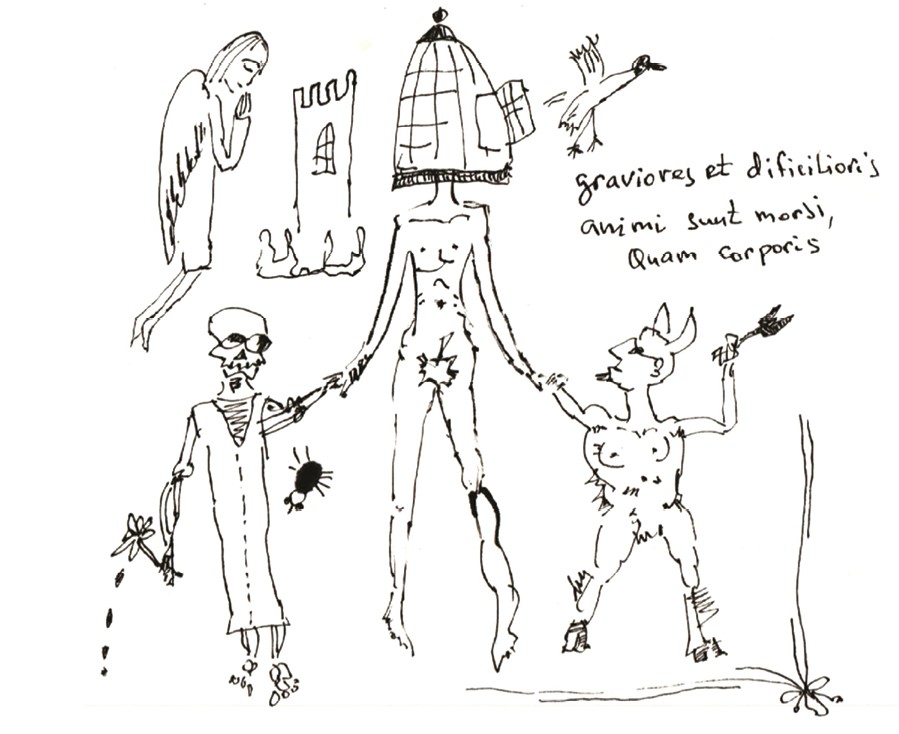 graviores et dificilioris
animi sunt morsi,
Quam corporis